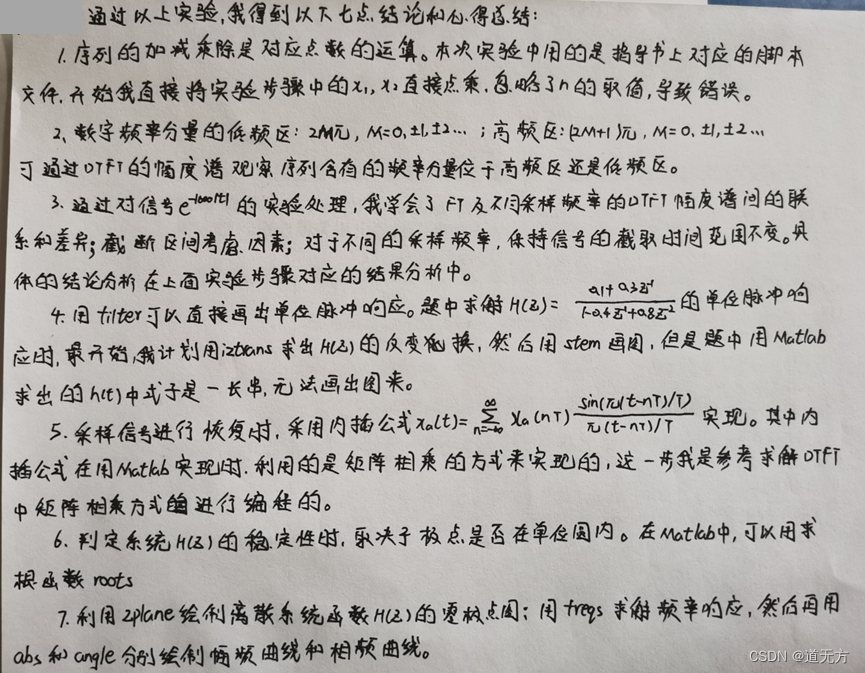 通过以上实验,我得到以下七点结论和心得总结:
1. 序列的加减乘除是对应点数的运算。本次实验中用的是指导书上对应的脚本
文件.开始我直接将实验步骤中的x₁,x₂直接点乘.忽略了n的取值,导致错误。
2、数字频率分量的低频区: 2Mπ, M=0,±1,±2… ; 高频区:(2M+1)π, M=0,±1,±2…
可通过DTFT的幅度谱观察序列含有的频率分量位于高频区还是低频区。
3. 通过对信号e^{-1000|t|}的实验处理,我学会了FT及不同采样频率的DTFT幅度谱间的联
系和差异;截断区间考虑因素;对于不同的采样频率,保持信号的截取时间范围不变。具
体的结论分析在上面实验步骤对应的结果分析中。
4. 用filter可以直接画出单位脉冲响应。题中求解H(Z)= \frac{0.1+0.3Z^{-1}}{1-0.4Z^{-1}+0.8Z^{-2}}的单位脉冲响
应时,最开始,我计划用iztrans求出H(Z)的反变换,然后用stem画图,但是题中用Matlab
求出的h(t)中式子是一长串,无法画出图来。
5. 采样信号进行恢复时,采用内插公式xₐ(t)= \sum_{n=-∞}^{∞} xₐ(nT) \frac{sin(π(t-nT)/T)}{π(t-nT)/T} 实现。其中内
插公式在用Matlab实现时.利用的是矩阵相乘的方式来实现的,这一步我是参考求解DTFT
中矩阵相乘方式进行编程的。
6. 判定系统H(Z)的稳定性时,取决于极点是否在单位圆内。在Matlab中,可以用求
根函数roots
7. 利用zplane绘制离散系统函数H(Z)的零极点图;用freqs求解频率响应,然后再用
abs和angle分别绘制幅频曲线和相频曲线。
CSDN @道无方